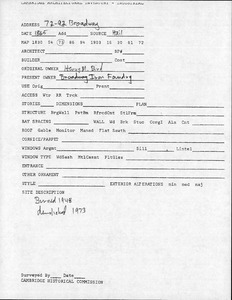 CAMBRIDGE ARCHITECTURAL INVENTORY
ADDRESS 72-92 Broadway
DATE 1865 SOURCE
MAP 1830 54 73 86 94 1903 16 30 61 72
ARCHITECT BP#
BUILDER Cost
ORIGINAL OWNER Henry M. Bird
PRESENT OWNER Broadway Iron Foundry
USE Orig Present
ACCESS Wtr RR Trck
STORIES DIMENSIONS PLAN
STRUCTURE BrgWall PstBm RfrcdCnt StlFrm
BAY SPACING WALL Wd Brk Stuc Congl Aln Cnt
ROOF Gable Monitor Mansd Flat Sawth
CORNICE/PARPET
WINDOWS Angmt Sill Lintel
WINDOW TYPE WdSash MtlCsment PictGls
ENTRANCE
OTHER ORNAMENT
STYLE EXTERIOR ALTERATIONS min med maj
SITE DESCRIPTION
Burned 1948
demolished 1973
Surveyed By Date
CAMBRIDGE HISTORICAL COMMISSION